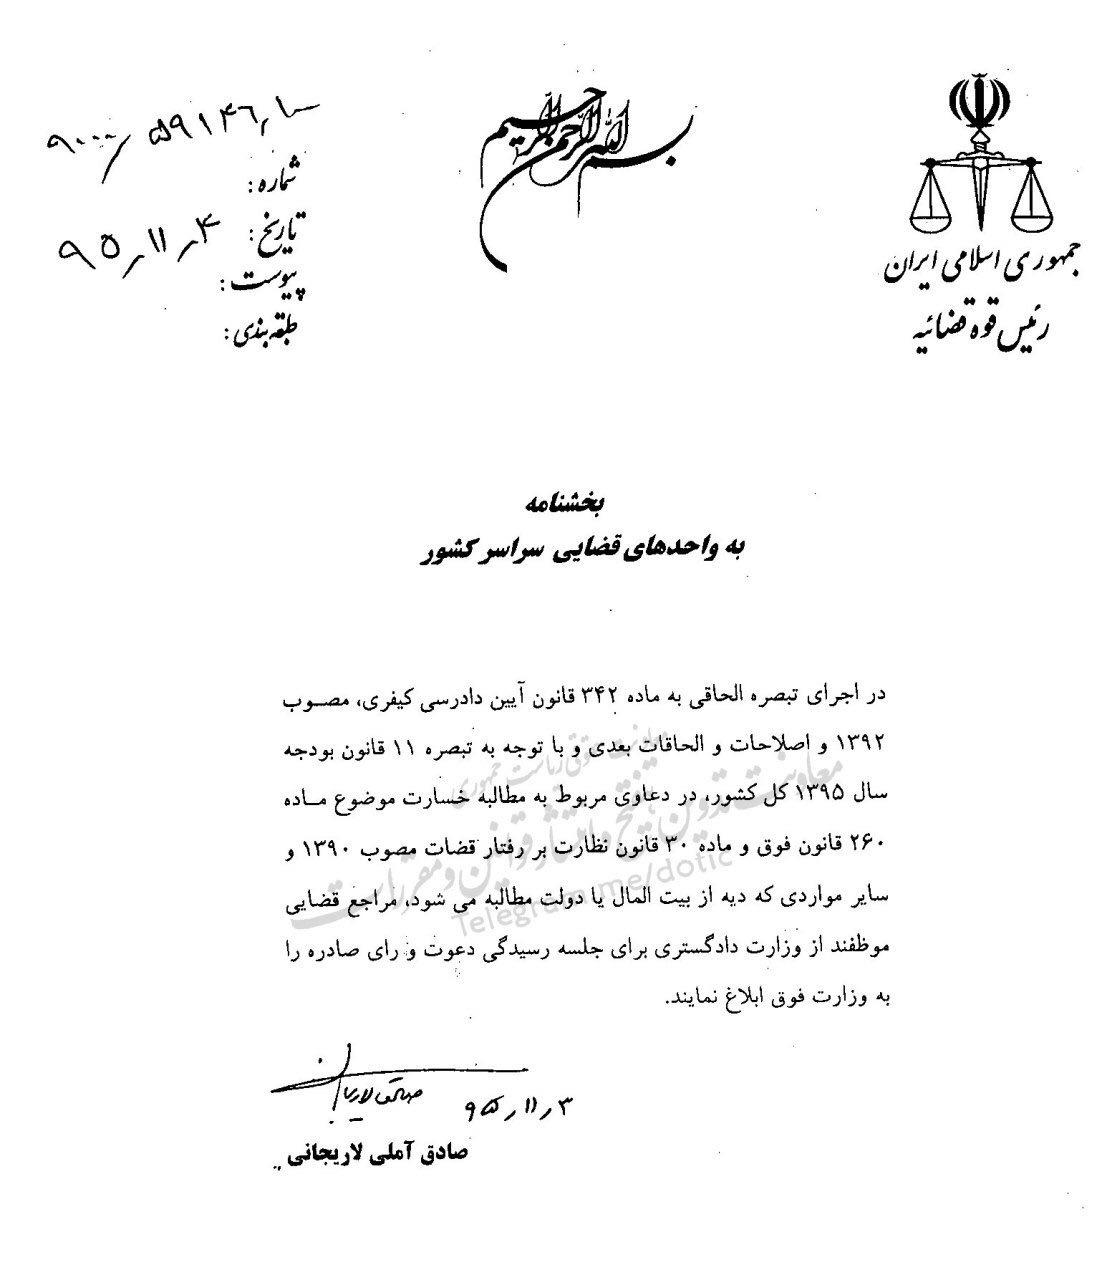 بسم الله الرحمن الرحیم
جمهوری اسلامی ایران
رئیس قوه قضائیه
۹۰۰۰/۵۹۱۴۶/۱۰۰
شماره :
تاریخ : ۹۵/۱۱/۴
پیوست :
طبقه‌بندی :
بخشنامه
به واحدهای قضایی سراسر کشور
در اجرای تبصره الحاقی به ماده ۳۴۲ قانون آیین دادرسی کیفری، مصوب
۱۳۹۲ و اصلاحات و الحاقات بعدی و با توجه به تبصره ۱۱ قانون بودجه
سال ۱۳۹۵ کل کشور، در دعاوی مربوط به مطالبه خسارت موضوع ماده
۲۶۰ قانون فوق و ماده ۳۰ قانون نظارت بر رفتار قضات مصوب ۱۳۹۰ و
سایر مواردی که دیه از بیت المال یا دولت مطالبه می شود، مراجع قضایی
موظفند از وزارت دادگستری برای جلسه رسیدگی دعوت و رای صادره را
به وزارت فوق ابلاغ نمایند.
معاونت حقوقی ریاست جمهوری
معاونت تدوین، تنقیح و انتشار قوانین و مقررات
Telegram.me/dotic
صادق لاریجانی
۹۵/۱۱/۳
صادق آملی لاریجانی